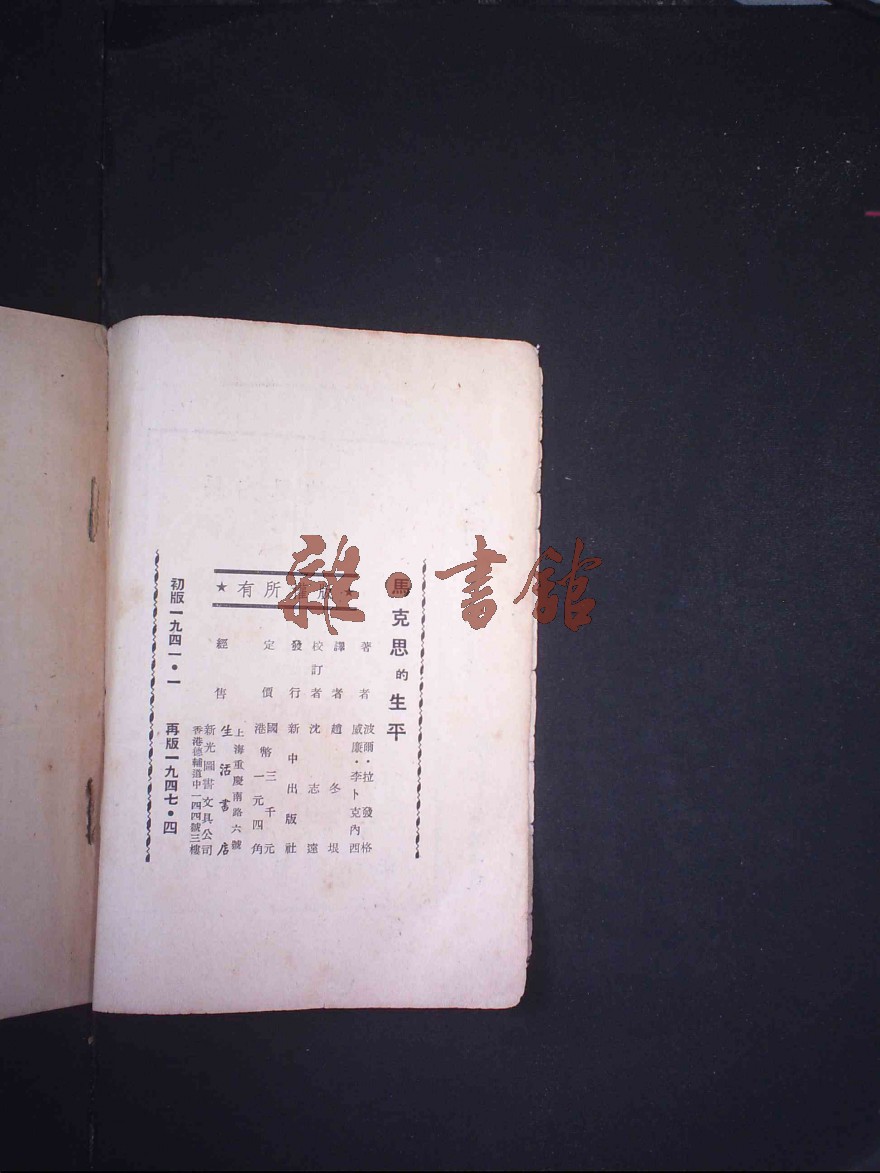 馬克思的生平
著者 波爾・拉發格
威廉・李卜克內西
譯者 趙冬垠
校訂者 沈志遠
發行 新中出版社
定價 國幣三千元
港幣一元四角
經售 上海重慶南路六號
生活書店
新光圖書文具公司
香港德輔道中一四四號三樓
★版權所有★
初版一九四一・一 再版一九四七・四
雜・書館